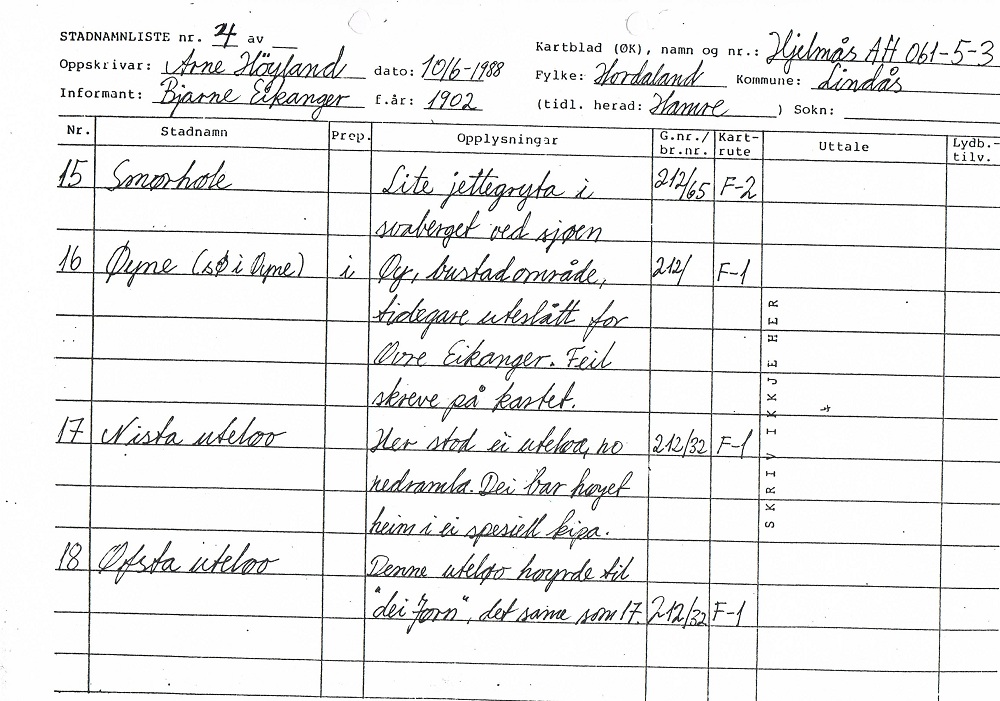 STADNAMNLISTE nr. 4 av __
Kartblad (ØK), namn og nr.: Hjelmås AH 061-5-3
Oppskrivar: Arne Höyland dato: 10/6-1988
Fylke: Hordaland Kommune: Lindås
Informant: Bjarne Eikanger f.år: 1902
(tidl. herad: Hamre ) Sokn:
Nr. Stadnamn Prep. Opplysningar G.nr./ br.nr. Kart- rute Uttale Lydb.- tilv.
15 Smørhole Lite jettegryta i 212/65 F-2
svaberget ved sjøen
16 Øyne (sø i Øyne) i Øy, bustadområde, 212/ F-1
tidegare uteslått for
Øvre Eikanger. Feil
skreve på kartet.
17 Nista uteløo Her stod ei uteløa, no 212/32 F-1
nedramla. Dei bar høyet
heim i ei spesiell kipa.
18 Øfsta uteløo Denne uteløo høyrde til
"dei Jørn", det same som 17. 212/32 F-1
SKRIV IKKJE HER